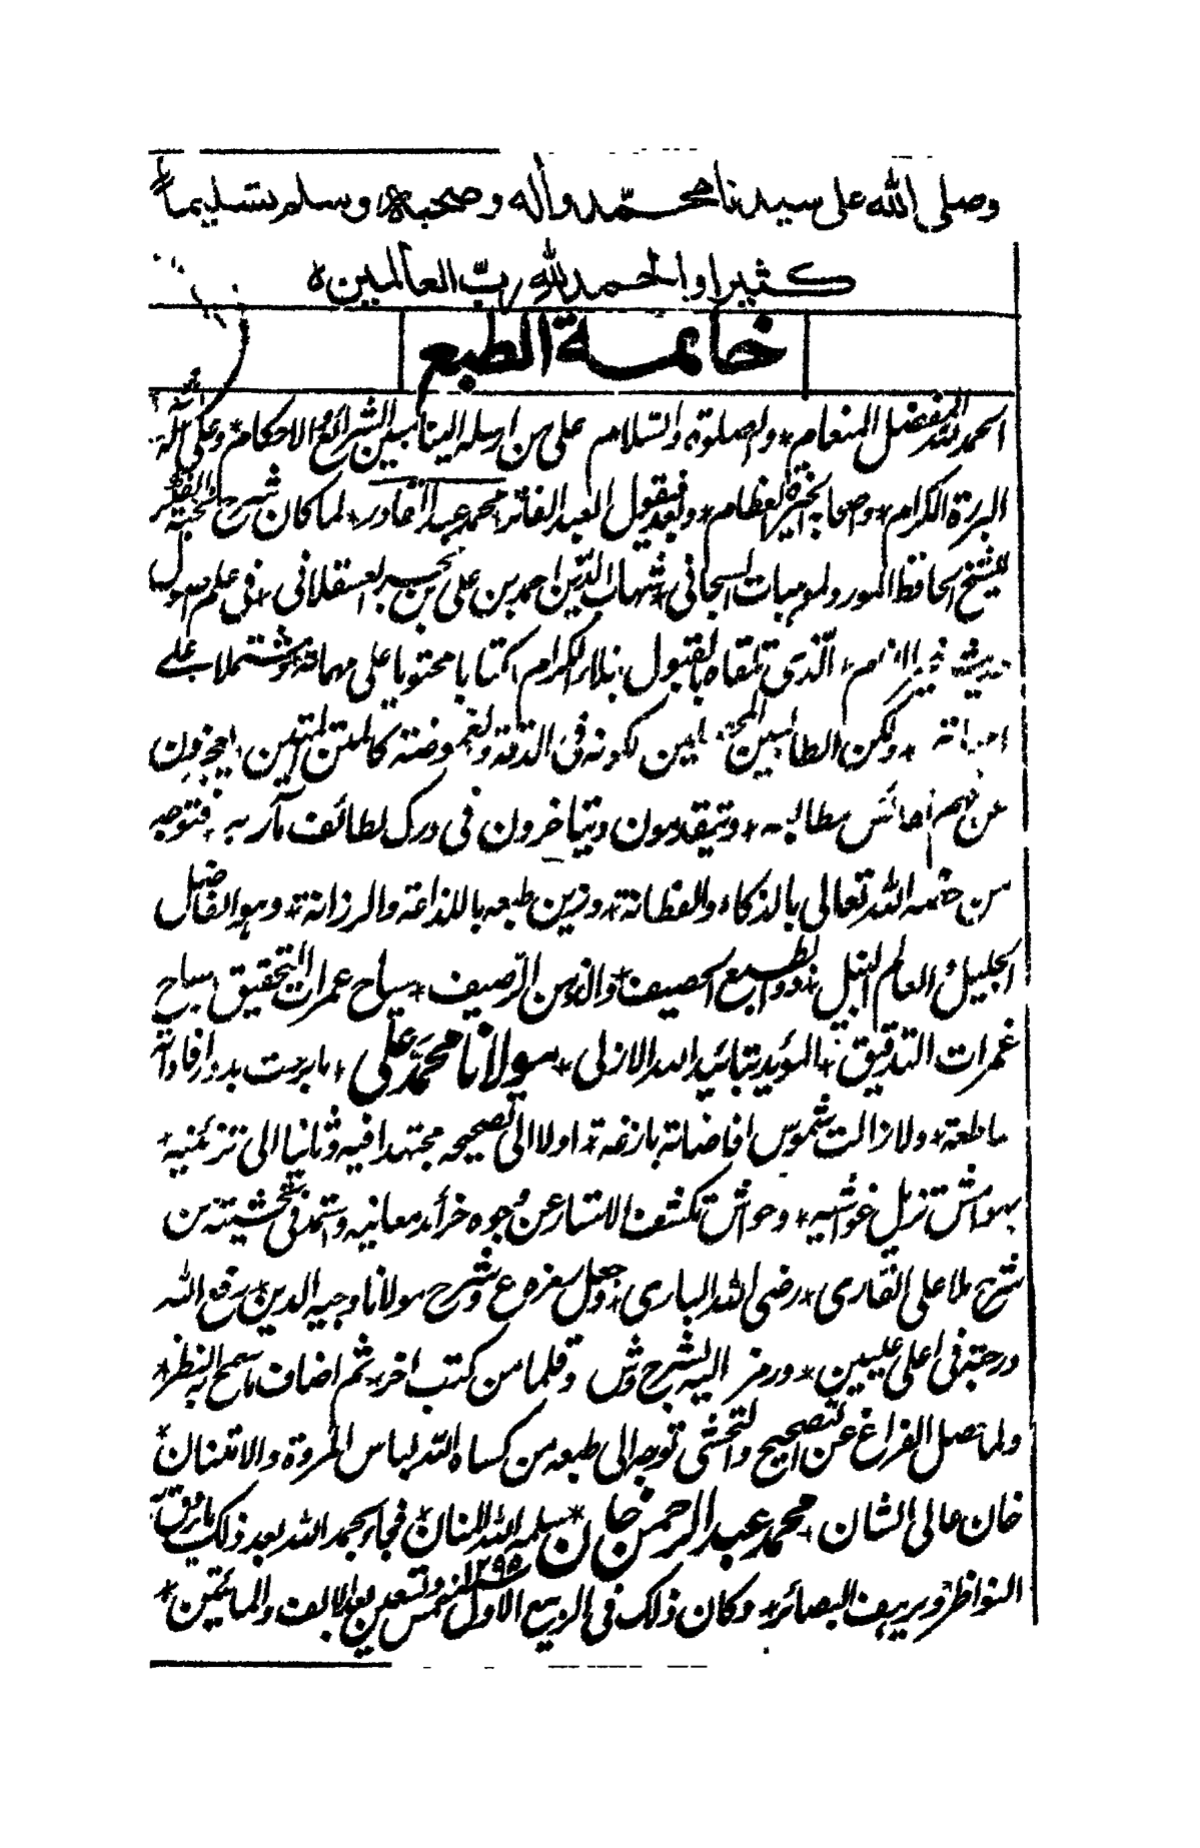 وصلى الله على سيدنا محمّد واله وصحبه وسلم تسليما
كثيرا والحمد لله ربّ العالمين ه
خاتمة الطبع
الحمد لله المفضل المنعام * والصلوة والسّلام على من ارسله الينا لتبيين الشرائع والاحكام * وعلى آله
البررة الكرام * وصحابته الخيرة العظام * وبعد فيقول العبد الفاتر محمد عبد القادر * لما كان شرح النخبة
للشيخ الحافظ المورد للمواهبات السبحاني * شهاب الدّين احمد بن على بن حجر العسقلانى * فى علم اصول
حديث خير الانام * الّذى تلقاه بالقبول نبلاء الكرام * كتابا محتويا على مهماته * ومشتملا على
ولكن الطالبين لكونه فى الدقة والغموضة كالمتن المتين * يعجزون
عن فهم مطالبه * ويتقدمون ويتاخرون فى درك لطائف مآربه * فتوجه
من خصه الله تعالى بالذكاء والفطانة * وزين طبعه باللذاعة والرزانة * وهو الفاضل
الجليل والعالم النبيل * ذو الطبع الحصيف * والذهن الرّصيف * سياح عمرات التحقيق سباح
غمرات التدقيق * المؤيد بتائيد الله الازلى * مولانا محمد على * ما برحت بدور افاداته
ساطعة * ولا زالت شموس افاضاته بازغة * اولا الى تصحيحه مجتهدا فيه وثانيا الى تزئينه *
بهوامش تزيل غواشيه * وحواش تكشف الاستار عن وجوه خرائد معانيه واستمد فى تحشيته من
شرح ملا على القارى * رضى الله البارى * وجعل رمزه ع وشرح مولانا وجيه الدين * رفع الله
درجته فى اعلى عليين * ورمز اليه بشرح وش وقلما من كتب اخر * ثم اضاف ما سمح به النظر *
ولما حصل الفراغ عن التصحيح والتحشى توجه الى طبعه من كساه الله لباس المروة والامتنان *
خان عالى الشان * محمد عبد الرحمن خان * سلمه الله المنان * فجاء بحمد الله بعد ذلك ما يروق
النواظر ويرهف البصائر * وكان ذلك فى الربيع الاول ١٢٩٥ لخمس وتسعين بعد الالف والمائتين *